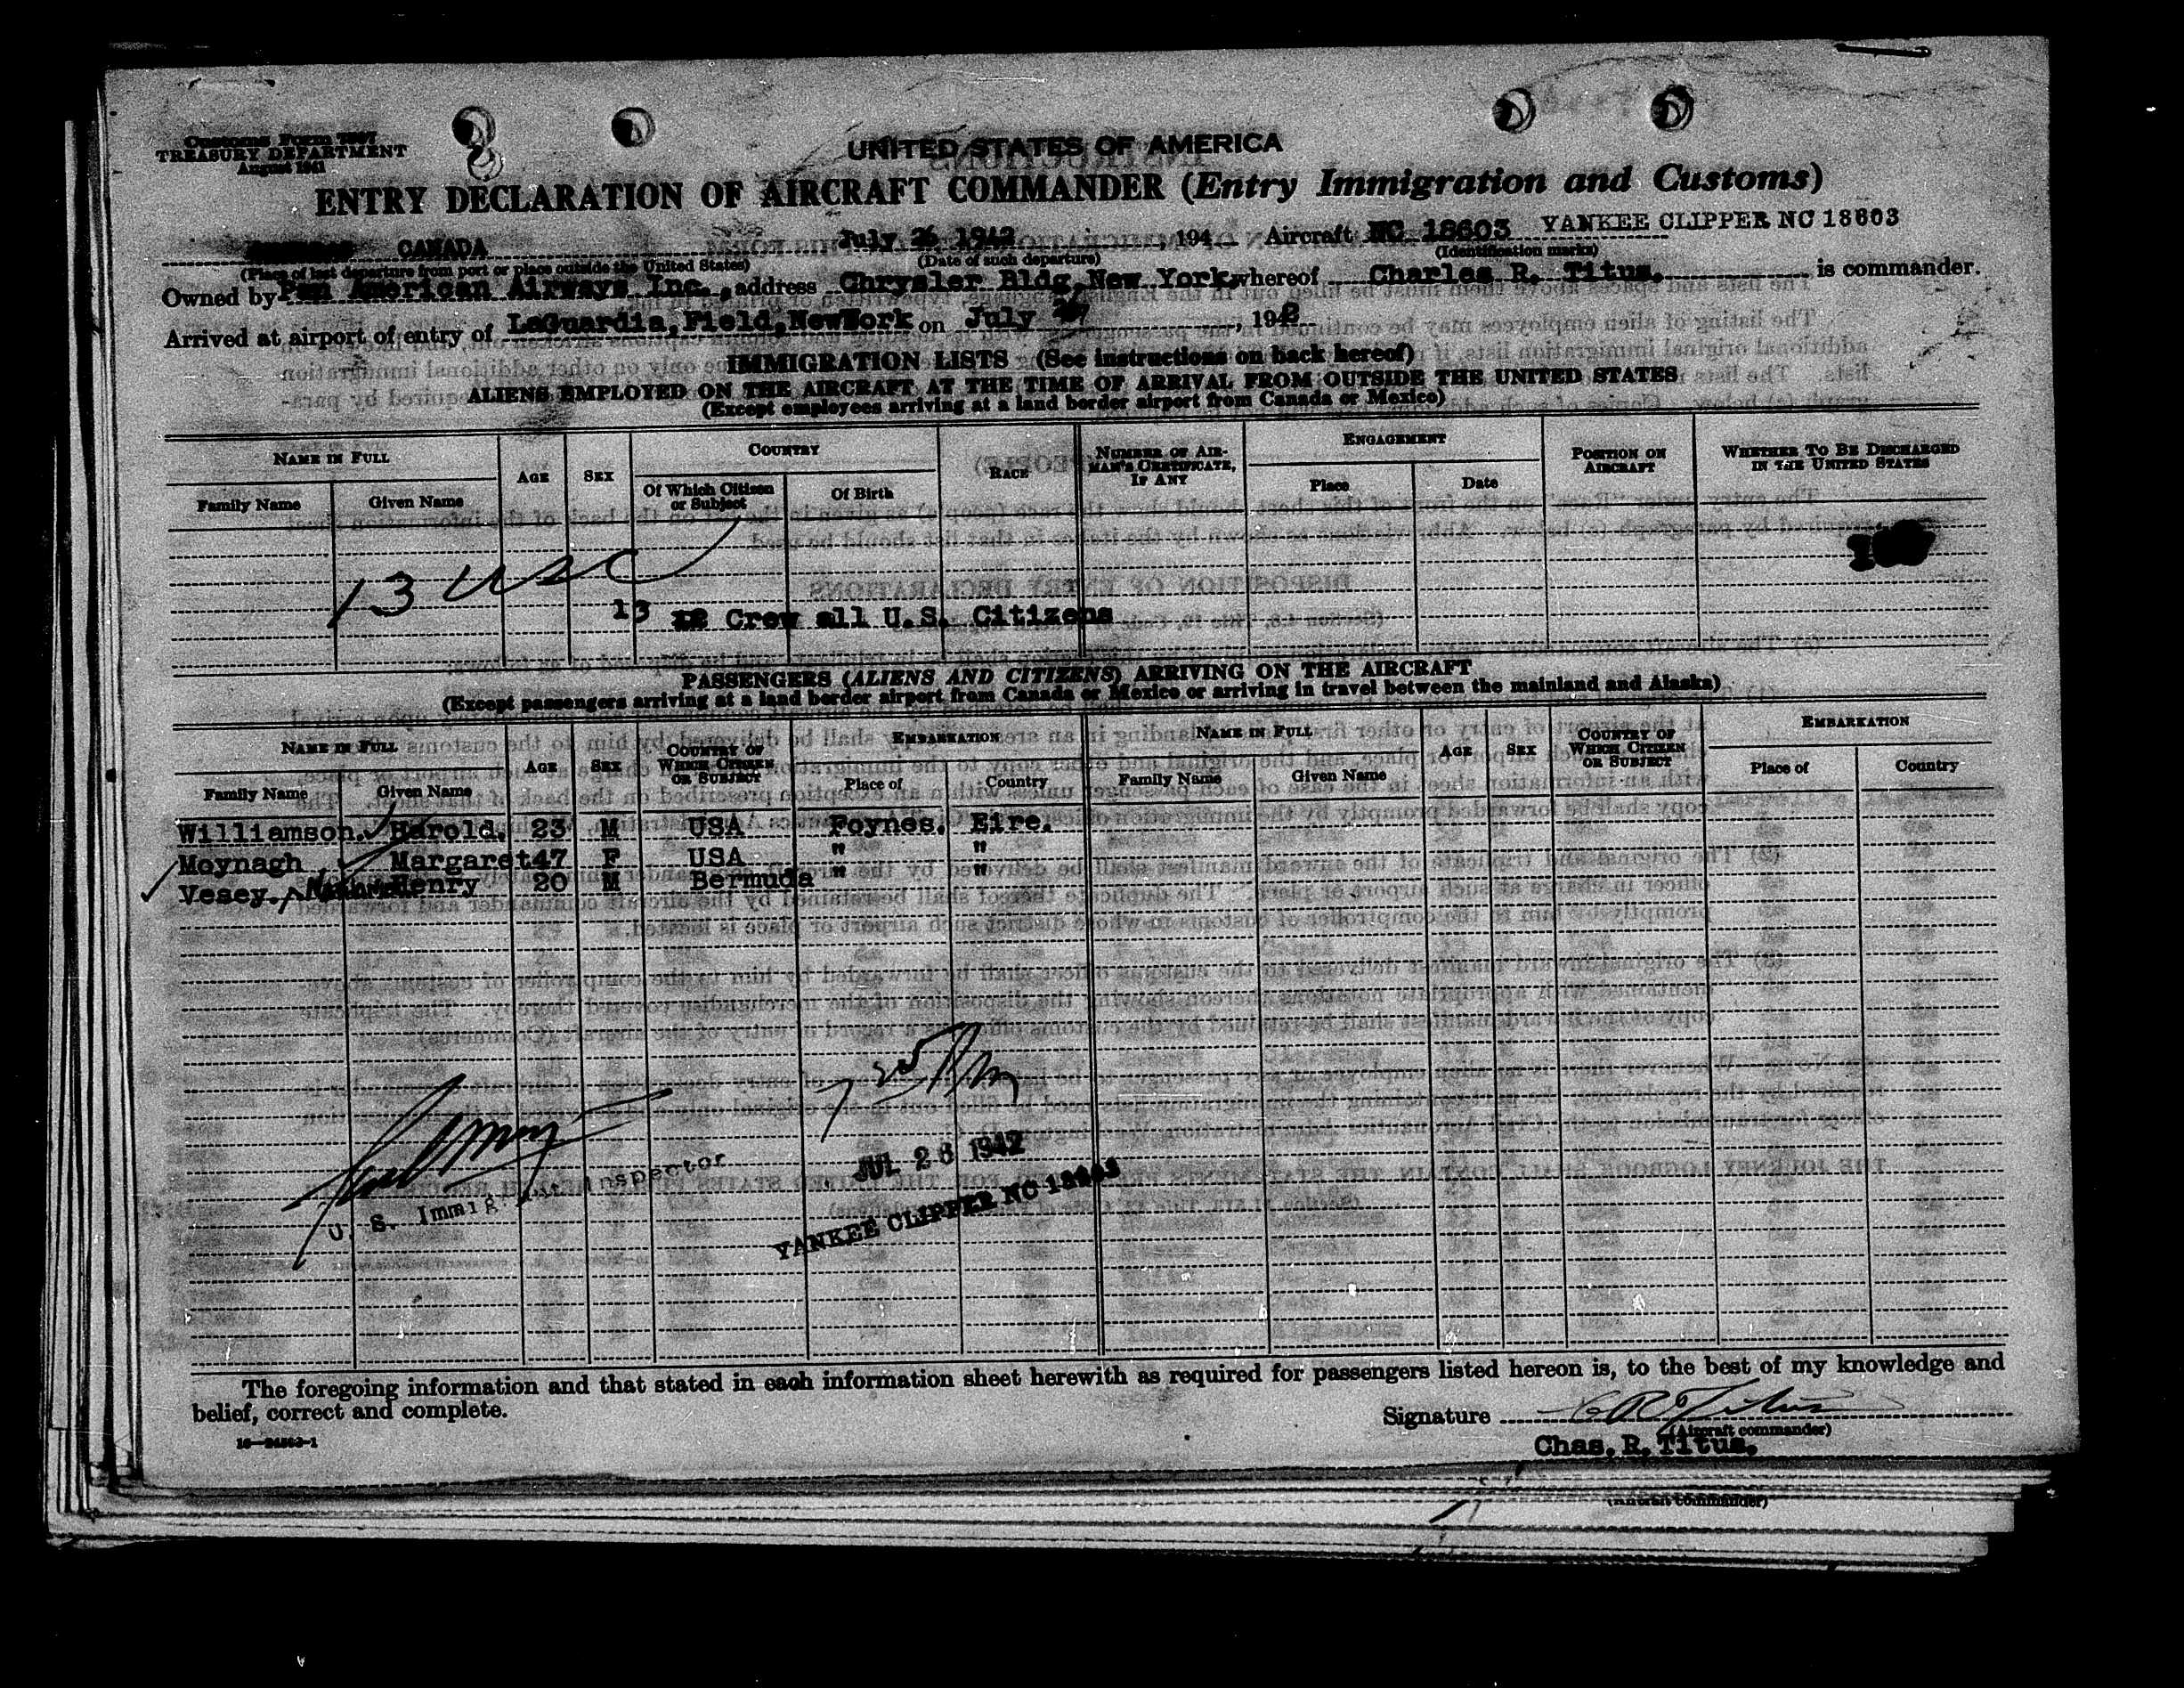 Customs Form 7507
TREASURY DEPARTMENT
August 1941
UNITED STATES OF AMERICA
ENTRY DECLARATION OF AIRCRAFT COMMANDER (Entry Immigration and Customs)
CANADA July 26 1942, 194 Aircraft NC 18603 YANKEE CLIPPER NC 18603
(Place of last departure from port or place outside the United States) (Date of such departure) (Identification marks)
Owned by Pan American Airways Inc., address Chrysler Bldg, New York, whereof Charles R. Titus. is commander.
Arrived at airport of entry of LaGuardia, Field, NewYork on July, 1942
IMMIGRATION LISTS (See instructions on back hereof)
ALIENS EMPLOYED ON THE AIRCRAFT AT THE TIME OF ARRIVAL FROM OUTSIDE THE UNITED STATES
(Except employees arriving at a land border airport from Canada or Mexico)
NAME IN FULL AGE SEX COUNTRY RACE NUMBER OF AIRMAN'S CERTIFICATE, IF ANY ENGAGEMENT POSITION ON AIRCRAFT WHETHER TO BE DISCHARGED IN THE UNITED STATES
Family Name Given Name Of Which Citizen or Subject Of Birth Place Date
13 USC
13 12 Crew all U.S. Citizens
PASSENGERS (ALIENS AND CITIZENS) ARRIVING ON THE AIRCRAFT
(Except passengers arriving at a land border airport from Canada or Mexico or arriving in travel between the mainland and Alaska)
NAME IN FULL AGE SEX COUNTRY OF WHICH CITIZEN OR SUBJECT EMBARKATION NAME IN FULL AGE SEX COUNTRY OF WHICH CITIZEN OR SUBJECT EMBARKATION
Family Name Given Name Place of Country Family Name Given Name Place of Country
Williamson. Harold. 23 M USA Foynes. Eire.
Moynagh Margaret 47 F USA " "
Vesey. Henry 20 M Bermuda " "
U. S. Immig. Inspector
JUL 26 1942
YANKEE CLIPPER NC 18603
The foregoing information and that stated in each information sheet herewith as required for passengers listed hereon is, to the best of my knowledge and
belief, correct and complete.
Signature C R Titus
(Aircraft commander)
Chas. R. Titus.
(Aircraft commander)